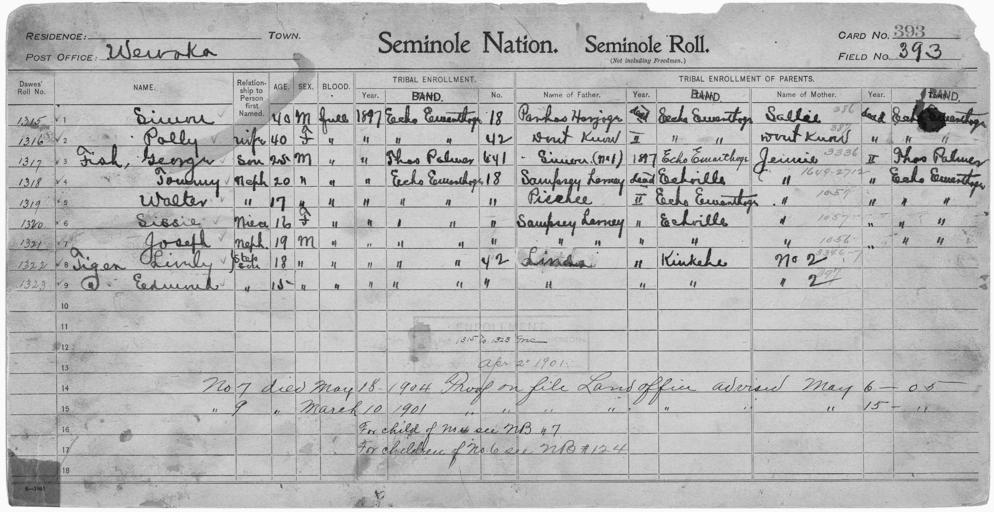 RESIDENCE: TOWN. Seminole Nation. Seminole Roll. CARD NO. 393
POST OFFICE: Wewoka (Not including Freedmen.) FIELD NO. 393
Dawes' Roll No. NAME. Relationship to Person first Named. AGE. SEX. BLOOD. TRIBAL ENROLLMENT. TRIBAL ENROLLMENT OF PARENTS.
Year. BAND. No. Name of Father. Year. BAND. Name of Mother. Year. BAND.
1315 1 Simon 40 M full 1897 Echo Emarthoge 18 Parhos Harjoge dead Echo Emarthoge Sallie dead Echo Emarthoge
1316 2 Polly wife 40 F " " " 42 Dont Know " " " Dont Know " " "
1317 3 Fish, George Son 25 M " " Thos Palmer 641 Simon (No1) 1897 Echo Emarthoge Jennie " Thos Palmer
1318 4 Tommy Neph 20 " " " Echo Emarthoge 18 Sampsey Larney dead Echville " 1649-2712 " Echo Emarthoge
1319 5 Walter " 17 " " " " " " Pichee " Echo Emarthoge " 1057 " " "
1320 6 Sissie Niece 16 F " " " " " Sampsey Larney " Echville " 1057 " " "
1321 7 Joseph Neph. 19 M " " " " " " " " " " 1056 " " "
1322 8 Tiger Linly Step Son 18 " " " " " 42 Linda " Kinkehe No 2
1323 9 " Edmund " 15 " " " " " " " " " " 2
10
11
12 1315 to 1323 Inc
13 Apr 2 1901.
14 No 7 died May 18 - 1904 Proof on file Land office advised May 6 - 05
15 " 9 " March 10 1901 " " " " " " " 15 - "
16 For child of No 4 see NB #7
17 For children of No. 6 see NB #124
18